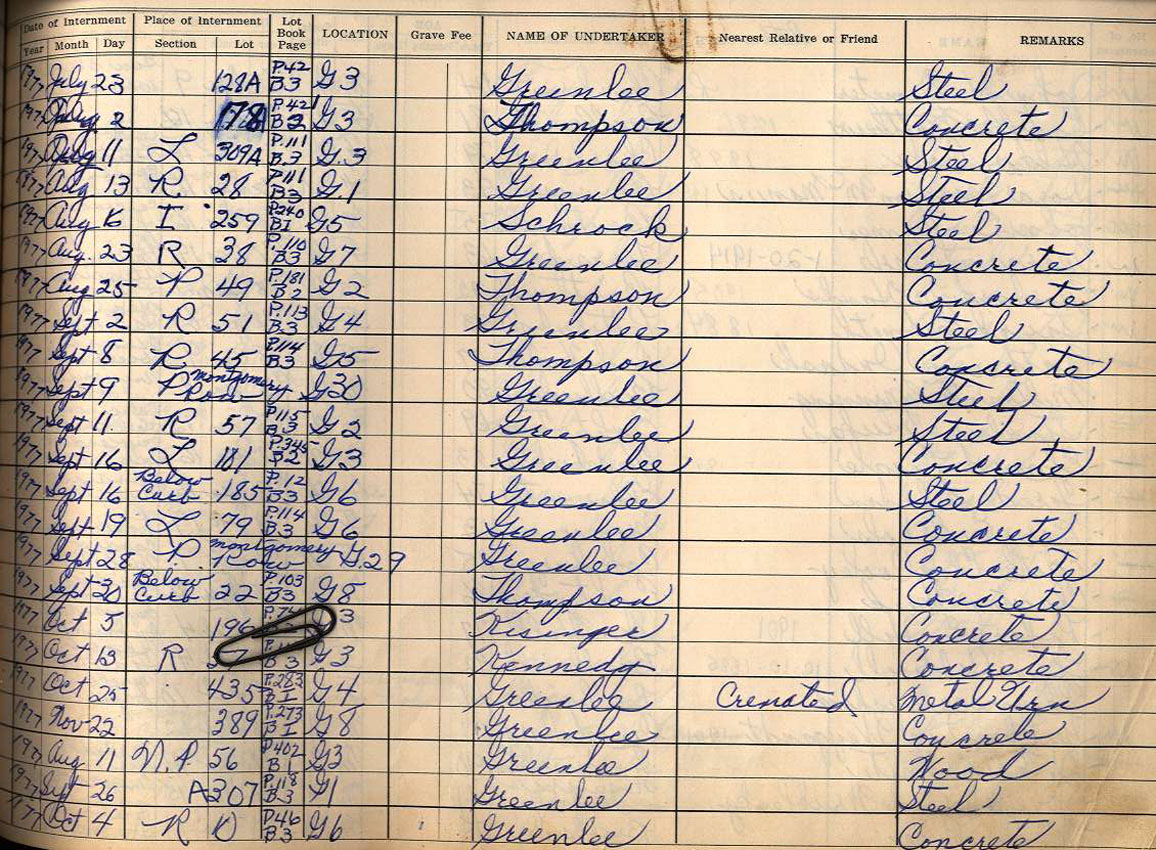 Date of Internment Place of Internment Lot Book Page LOCATION Grave Fee NAME OF UNDERTAKER Nearest Relative or Friend REMARKS
Year Month Day Section Lot
1977 July 23 128A P.42 B3 G3 Greenlee Steel
1977 Aug 2 178 P.42 B3 G3 Thompson Concrete
1977 Aug 11 L 309A P.111 B.3 G.3 Greenlee Steel
1977 Aug 13 R. 28 P.111 B3 G.1 Greenlee Steel
1977 Aug 16 I 259 P.240 BI G5 Schrock Steel
1977 Aug. 23 R 38 P.110 B3 G7 Greenlee Concrete
1977 Aug 25 P 49 P.181 B2 G2 Thompson Concrete
1977 Sept 2 R 51 P.113 B.3 G4 Greenlee Steel
1977 Sept 8 R 45 P.114 B3 G5 Thompson Concrete
1977 Sept 9 P Montgomery Row G30 Greenlee Steel
1977 Sept 11. R 57 P.115 B.3 G2 Greenlee Steel
1977 Sept 16 L 181 P.345 B2 G3 Greenlee Concrete
1977 Sept 16 Below Curb .185 P.12 B3 G6 Greenlee Steel
1977 Sept 19 L .79 P.114 B.3 G6 Greenlee Concrete
1977 Sept 28 P Montgomery Row G.29 Greenlee Concrete
1977 Sept 30 Below Curb 22 P.103 B3 G8 Thompson Concrete
1977 Oct 5 196 G3 Kisinger Concrete
1977 Oct 13 R B3 G3 Kennedy Concrete
1977 Oct 25 435 P.283 BI G4 Greenlee Cremated Metal Urn
1977 Nov 22 389 P.273 BI G8 Greenlee Concrete
1977 Aug 11 N.P 56 P402 B1 G3 Greenlee Wood
1977 Sept 26 A307 P.118 B.3 G1 Greenlee Steel
1977 Oct 4 R P46 B3 G6 Greenlee Concrete